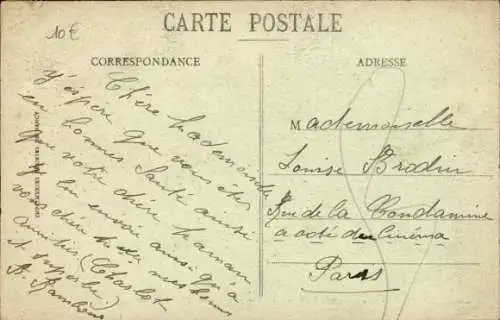 10 €
CARTE POSTALE
CORRESPONDANCE
ADRESSE
Chère Mademoiselle
J'éspère que vous êtes
en bonnes Santé ainsi
que votre chère maman
envoi ainsi qu'à
vos chère
amitiés (Charlot
et
A.
Mademoiselle
Louise Brodin
Rue de la Condamine
a coté du Cinéma
Paris